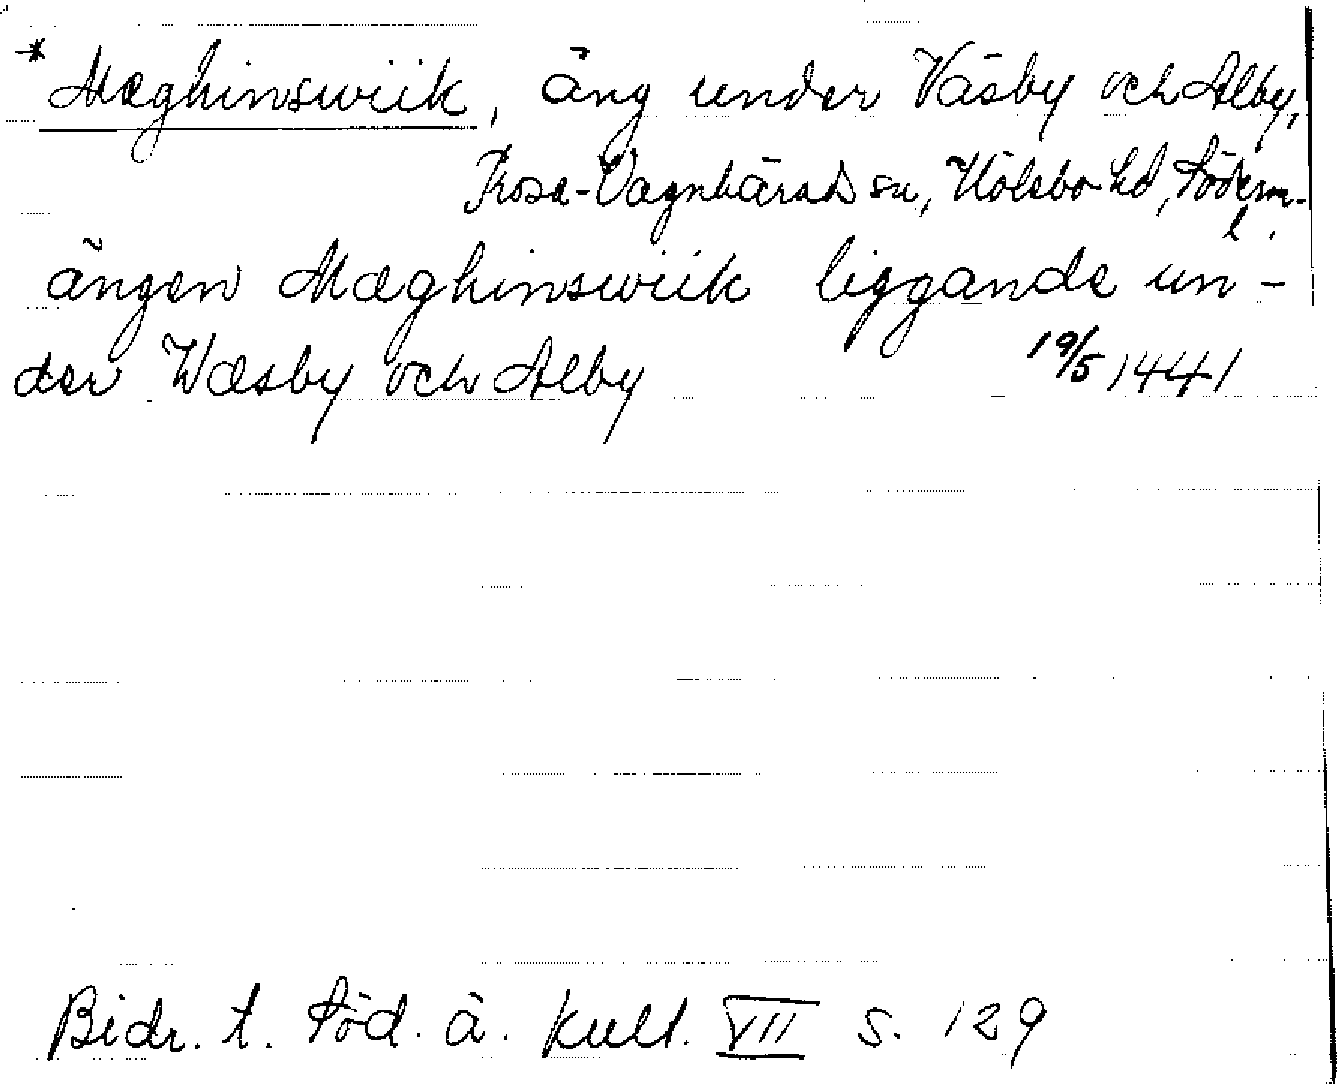 * Mæghinswiik, äng under Väsby och Alby,
Trosa-Vagnhärad sn, Hölebo hd, Söderm-
l.
ängen Mæghinswiik liggande un-
der Wæsby och Alby 19/5 1441
Bidr. t. Söd. ä. kult. VII s. 129